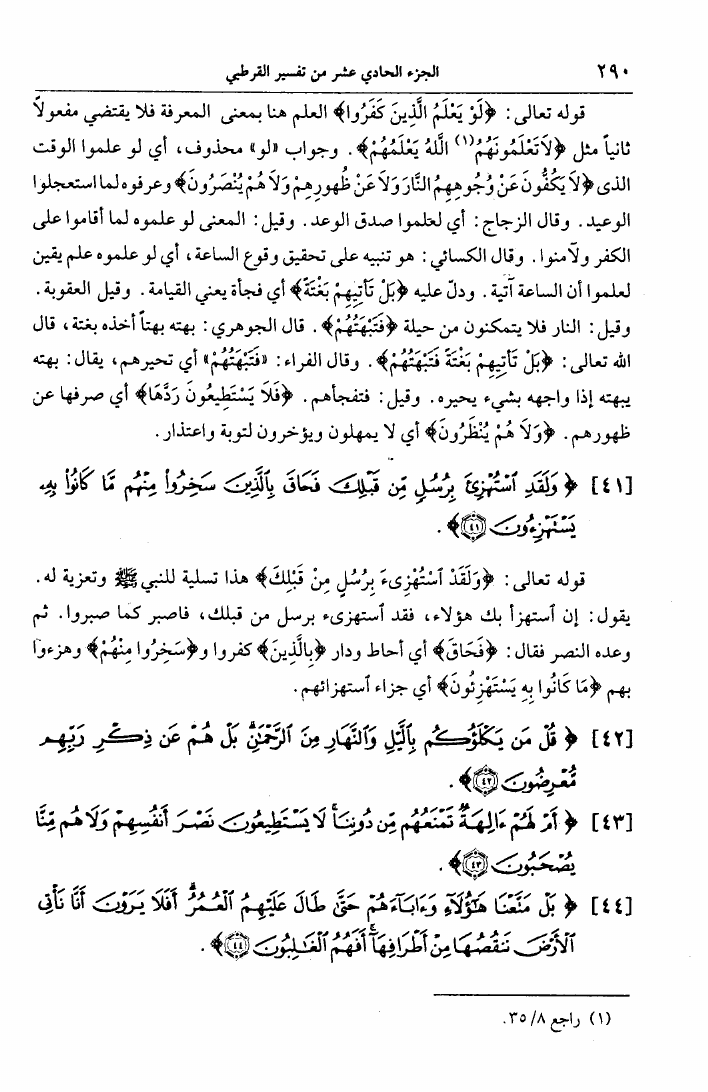 ٢٩٠ الجزء الحادي عشر من تفسير القرطبي
قوله تعالى: ﴿لَوْ يَعْلَمُ الَّذِينَ كَفَرُوا﴾ العلم هنا بمعنى المعرفة فلا يقتضي مفعولاً
ثانياً مثل ﴿لاَ تَعْلَمُونَهُمُ(١) اللَّهُ يَعْلَمُهُمْ﴾. وجواب «لو» محذوف، أي لو علموا الوقت
الذي ﴿لاَ يَكُفُّونَ عَنْ وُجُوهِهِمُ النَّارَ وَلاَ عَنْ ظُهُورِهِمْ وَلاَ هُمْ يُنْصَرُونَ﴾ وعرفوه لما استعجلوا
الوعيد. وقال الزجاج: أي لعلموا صدق الوعد. وقيل: المعنى لو علموه لما أقاموا على
الكفر ولآمنوا. وقال الكسائي: هو تنبيه على تحقيق وقوع الساعة، أي لو علموه علم يقين
لعلموا أن الساعة آتية. ودلّ عليه ﴿بَلْ تَأْتِيهِمْ بَغْتَةً﴾ أي فجأة يعني القيامة. وقيل العقوبة.
وقيل: النار فلا يتمكنون من حيلة ﴿فَتَبْهَتُهُمْ﴾. قال الجوهري: بهته بهتاً أخذه بغتة، قال
الله تعالى: ﴿بَلْ تَأْتِيهِمْ بَغْتَةً فَتَبْهَتُهُمْ﴾. وقال الفراء: «فَتَبْهَتُهُمْ» أي تحيرهم، يقال: بهته
يبهته إذا واجهه بشيء يحيره. وقيل: فتفجأهم. ﴿فَلاَ يَسْتَطِيعُونَ رَدَّهَا﴾ أي صرفها عن
ظهورهم. ﴿وَلاَ هُمْ يُنْظَرُونَ﴾ أي لا يمهلون ويؤخرون لتوبة واعتذار.
[٤١] ﴿ وَلَقَدِ ٱسْتُهْزِئَ بِرُسُلٍ مِّن قَبْلِكَ فَحَاقَ بِٱلَّذِينَ سَخِرُوا۟ مِنْهُم مَّا كَانُوا۟ بِهِۦ
يَسْتَهْزِءُونَ ٤١ ﴾.
قوله تعالى: ﴿وَلَقَدِ ٱسْتُهْزِىءَ بِرُسُلٍ مِنْ قَبْلِكَ﴾ هذا تسلية للنبي ﷺ وتعزية له.
يقول: إن ٱستهزأ بك هؤلاء، فقد ٱستهزىء برسل من قبلك، فاصبر كما صبروا. ثم
وعده النصر فقال: ﴿فَحَاقَ﴾ أي أحاط ودار ﴿بِالَّذِينَ﴾ كفروا و﴿سَخِرُوا مِنْهُمْ﴾ وهزءوا
بهم ﴿مَا كَانُوا بِهِ يَسْتَهْزِئُونَ﴾ أي جزاء ٱستهزائهم.
[٤٢] ﴿ قُلْ مَن يَكْلَؤُكُم بِٱلَّيْلِ وَٱلنَّهَارِ مِنَ ٱلرَّحْمَٰنِ ۗ بَلْ هُمْ عَن ذِكْرِ رَبِّهِم
مُّعْرِضُونَ ٤٢ ﴾.
[٤٣] ﴿ أَمْ لَهُمْ ءَالِهَةٌ تَمْنَعُهُم مِّن دُونِنَا ۚ لَا يَسْتَطِيعُونَ نَصْرَ أَنفُسِهِمْ وَلَا هُم مِّنَّا
يُصْحَبُونَ ٤٣ ﴾.
[٤٤] ﴿ بَلْ مَتَّعْنَا هَٰٓؤُلَآءِ وَءَابَآءَهُمْ حَتَّىٰ طَالَ عَلَيْهِمُ ٱلْعُمُرُ ۗ أَفَلَا يَرَوْنَ أَنَّا نَأْتِى
ٱلْأَرْضَ نَنقُصُهَا مِنْ أَطْرَافِهَآ ۚ أَفَهُمُ ٱلْغَٰلِبُونَ ٤٤ ﴾.
(١) راجع ٨/ ٣٥.